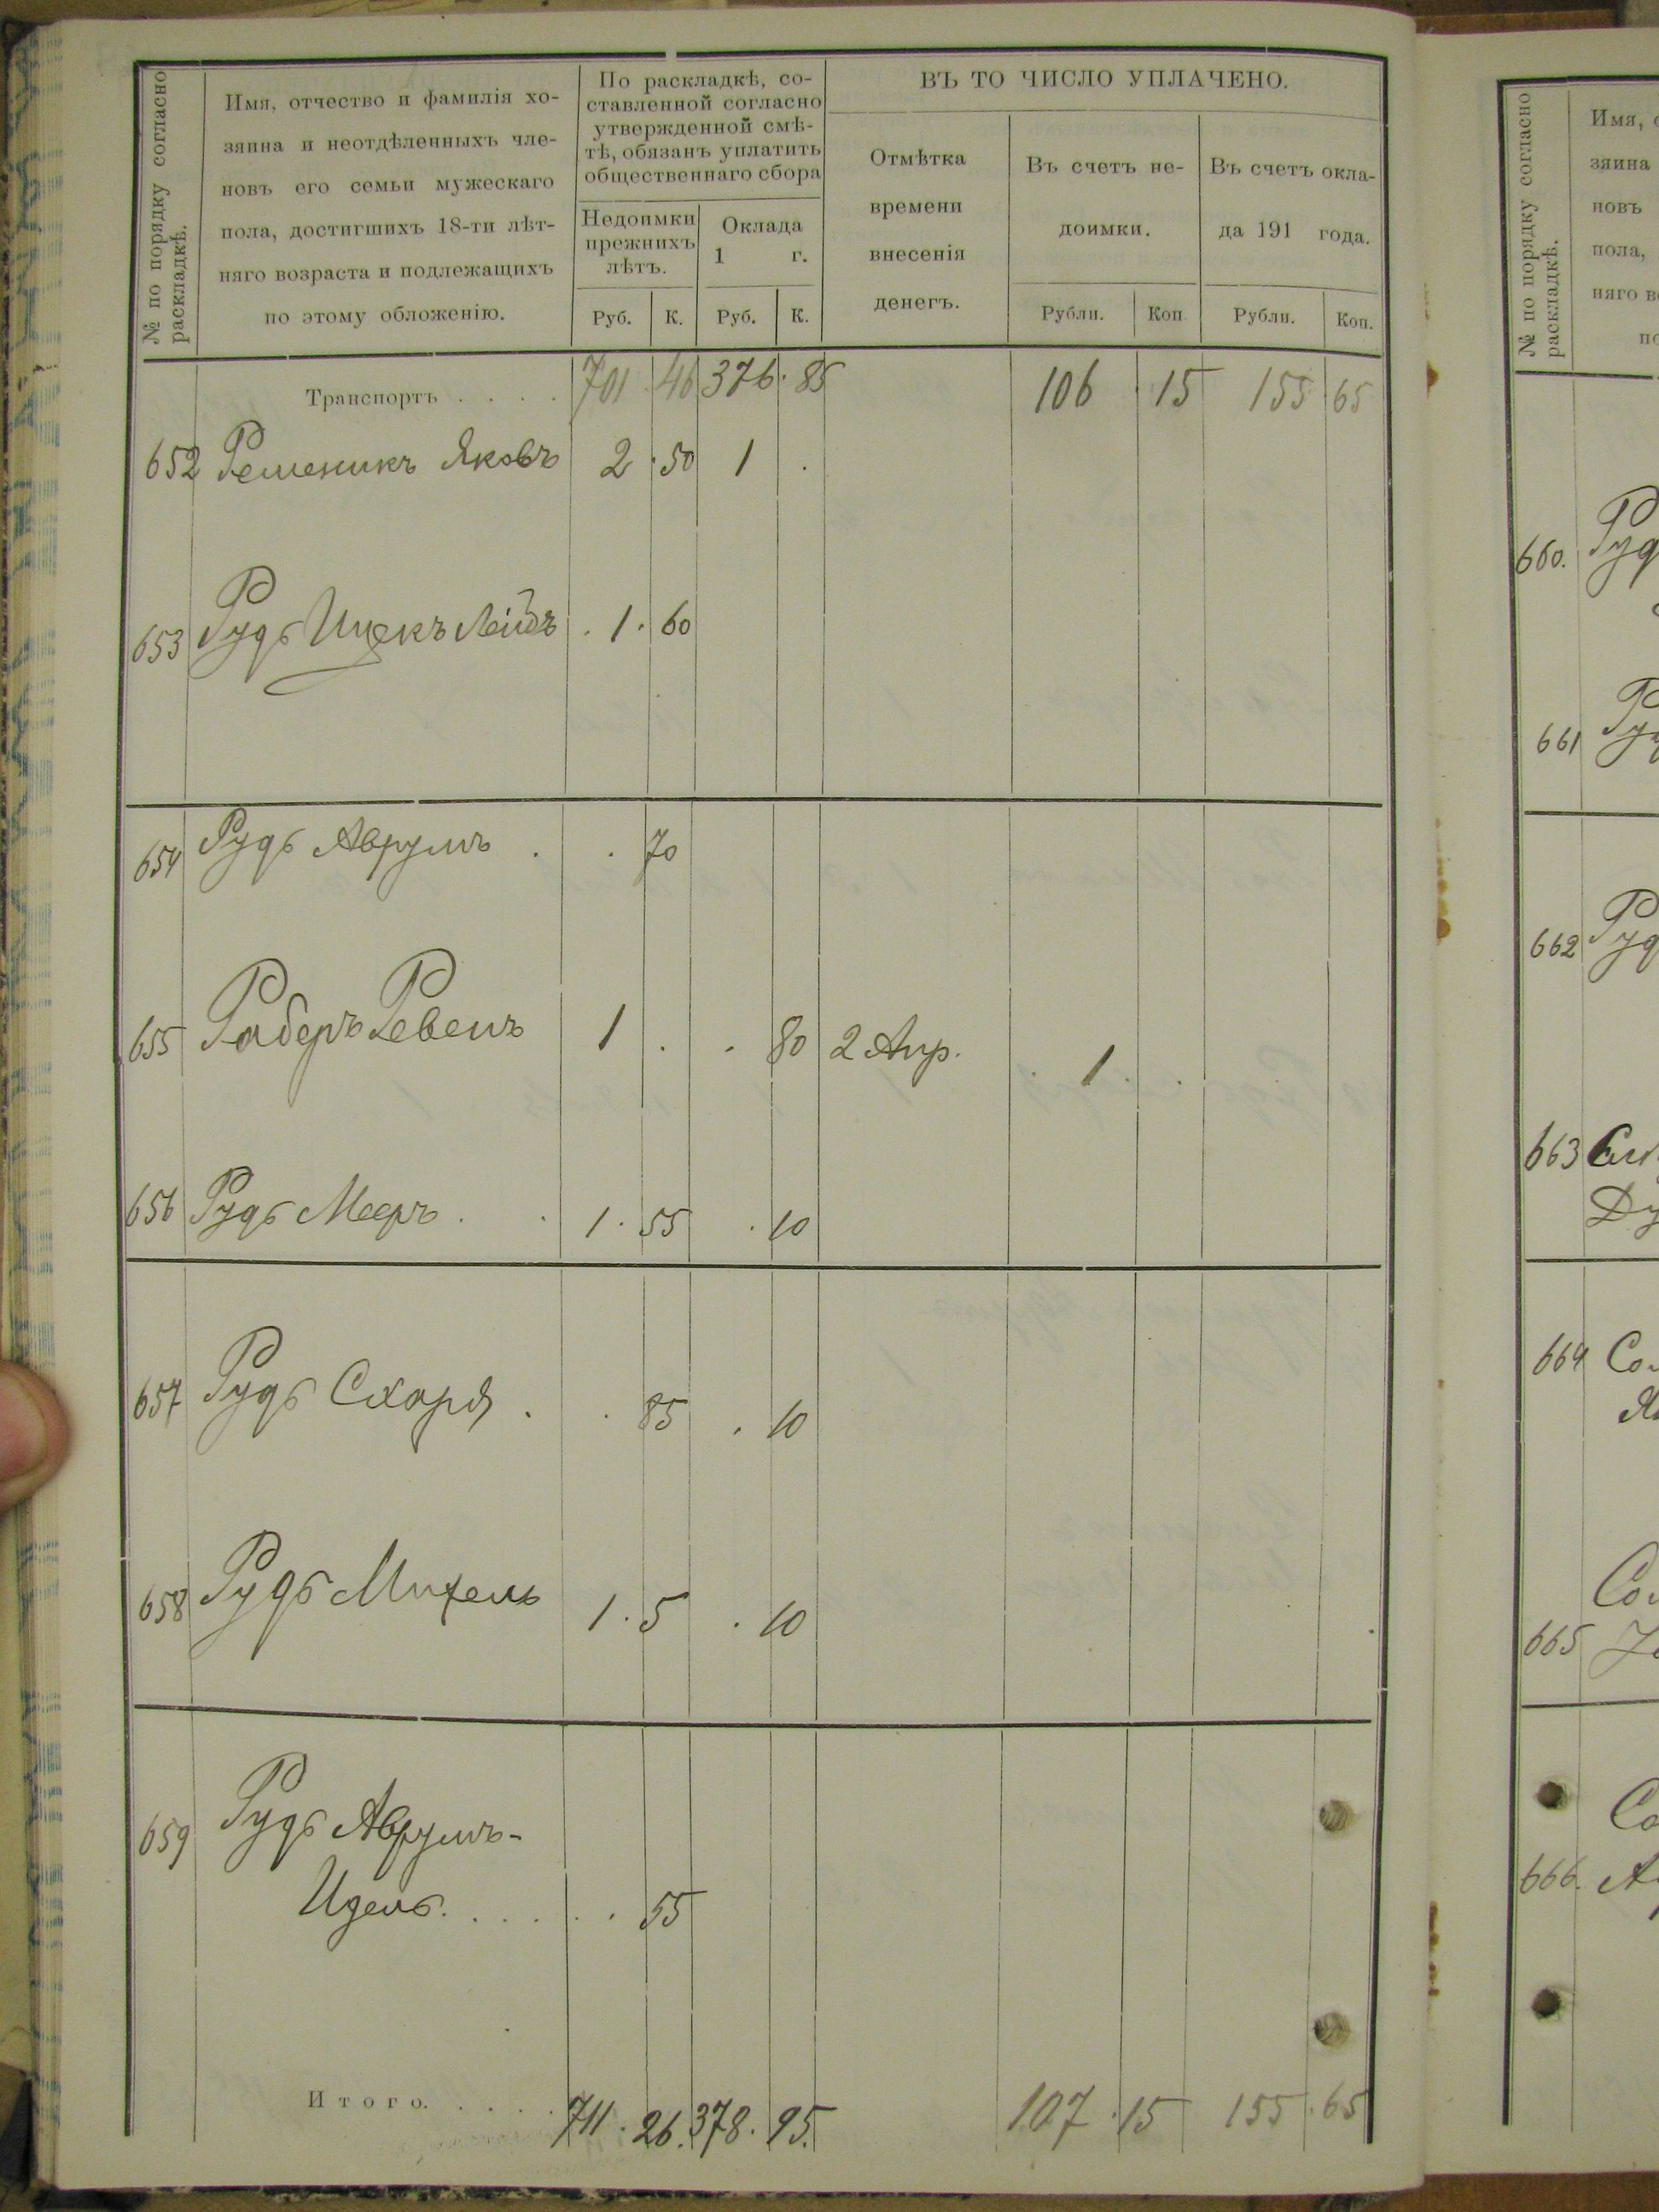 № по порядку согласно
раскладкѣ.
Имя, отчество и фамилія хо-
зяина и неотдѣленныхъ чле-
новъ его семьи мужескаго
пола, достигшихъ 18-ти лѣт-
няго возраста и подлежащихъ
по этому обложенію.
По раскладкѣ, со-
ставленной согласно
утвержденной смѣ-
тѣ, обязанъ уплатить
общественнаго сбора
Недоимки
прежнихъ
лѣтъ.
Оклада
1 г.
Руб. К. Руб. К.
ВЪ ТО ЧИСЛО УПЛАЧЕНО.
Отмѣтка
времени
внесенія
денегъ.
Въ счетъ не-
доимки.
Рубли. Коп
Въ счетъ окла-
да 191 года.
Рубли. Коп.
Транспортъ . . . . 701 . 46 376 . 85 106 . 15 155 65
652 Решеникъ Яковъ 2 . 50 1 .
653 Рудь Ицекъ Лейбъ . 1 . 60
654 Рудь Аврумъ . . 70
655 Рабергъ Ревенъ 1 . . 80 2 Апр. . 1 . .
656 Рудь Мееръ . . 1 . 55 . 10
657 Рудь Схаря . . 85 . 10
658 Рудь Михель 1 . 5 . 10
659 Рудь Аврумъ-
Идель . . . . . . 55
Итого. . . . . 711 . 26. 378 . 95. 107 . 15 155 . 65
№ по порядку согласно
раскладкѣ.
Имя,
зяина
новъ
пола,
660. Руд
661
662 Руд
663
Ду
664 Со
665
666.